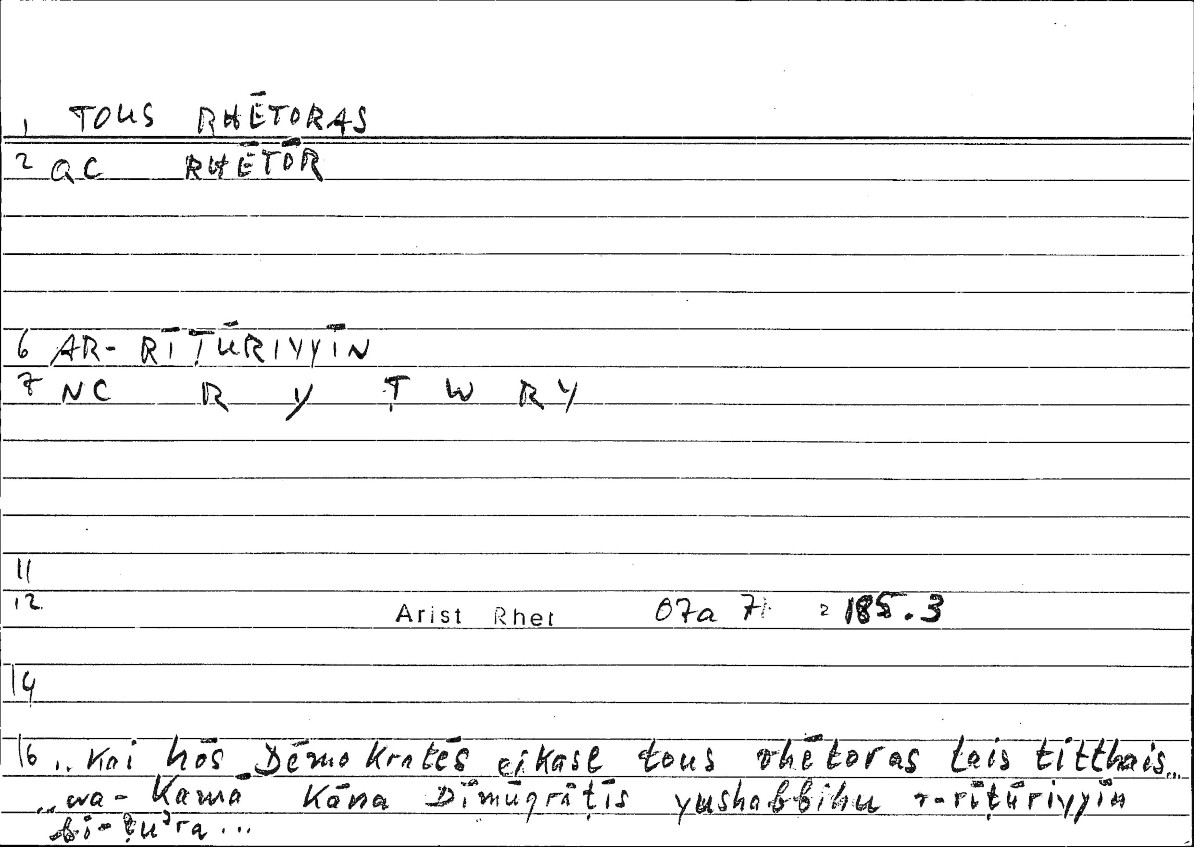 1 TOUS RHĒTORAS
2 QC RHĒTŌR
6 AR-RĪṬŪRIYYĪN
7 NC R Y Ṭ W RY
11
12 Arist Rhet 07a 7 = 185.3
14
16 .. kai hōs Dēmokratēs eikase tous rhētoras tais titthais...
.. wa-Kamā Kāna Dīmūqrāṭīs yushabbihu r-rīṭūriyyīn
bi-ẓuʾra ...